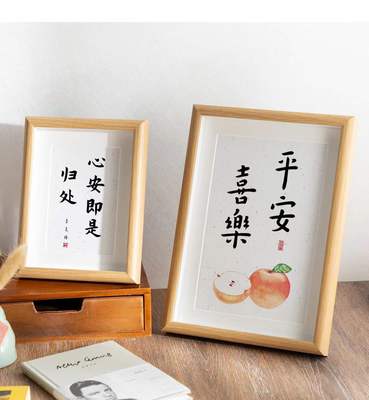 心安即是
归处
平安
喜樂